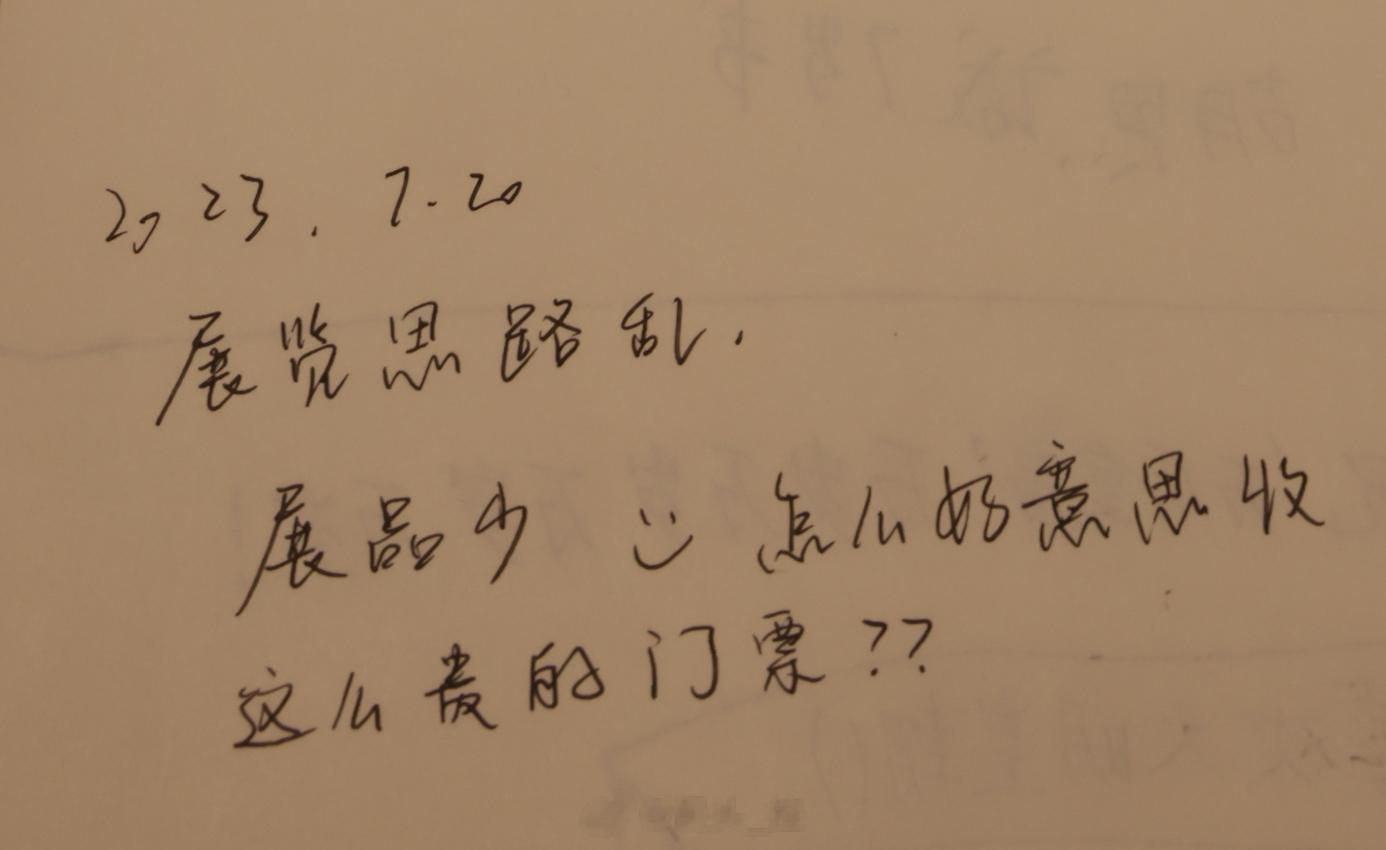 2023.7.20
展览思路乱.
展品少 :) 怎么好意思收
这么贵的门票??